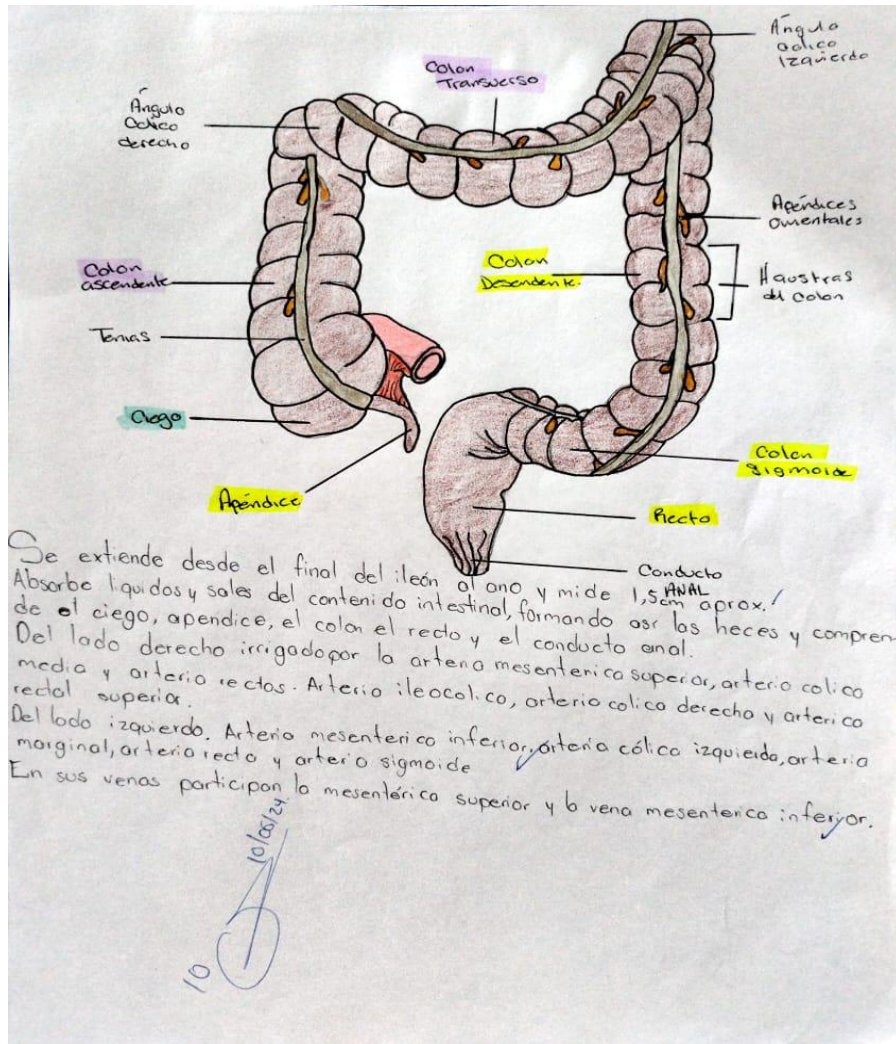 Ángulo
cólico
Izquierdo
Colon
Transverso
Ángulo
Cólico
derecho
Apéndices
omentales
Colon
ascendente
Colon
Desendente.
Haustras
del colon
Tenias
Ciego
Colon
sigmoide
Apéndice
Recto
Conducto
ANAL
Se extiende desde el final del ileón al ano y mide 1,5cm aprox.
Absorbe liquidos y sales del contenido intestinal, formando asi las heces y compren-
de el ciego, apendice, el colon el recto y el conducto anal.
Del lado derecho irrigado por la arteria mesenterica superior, arteria colica
media y arteria rectas. Arteria ileocolica, arteria colica derecha y arteria
rectal superior.
Del lado izquierdo. Arteria mesenterica inferior, arteria cólica izquierda, arteria
marginal, arteria recta y arteria sigmoide
En sus venas participan la mesentérica superior y la vena mesenterica inferior.
10
10/05/24